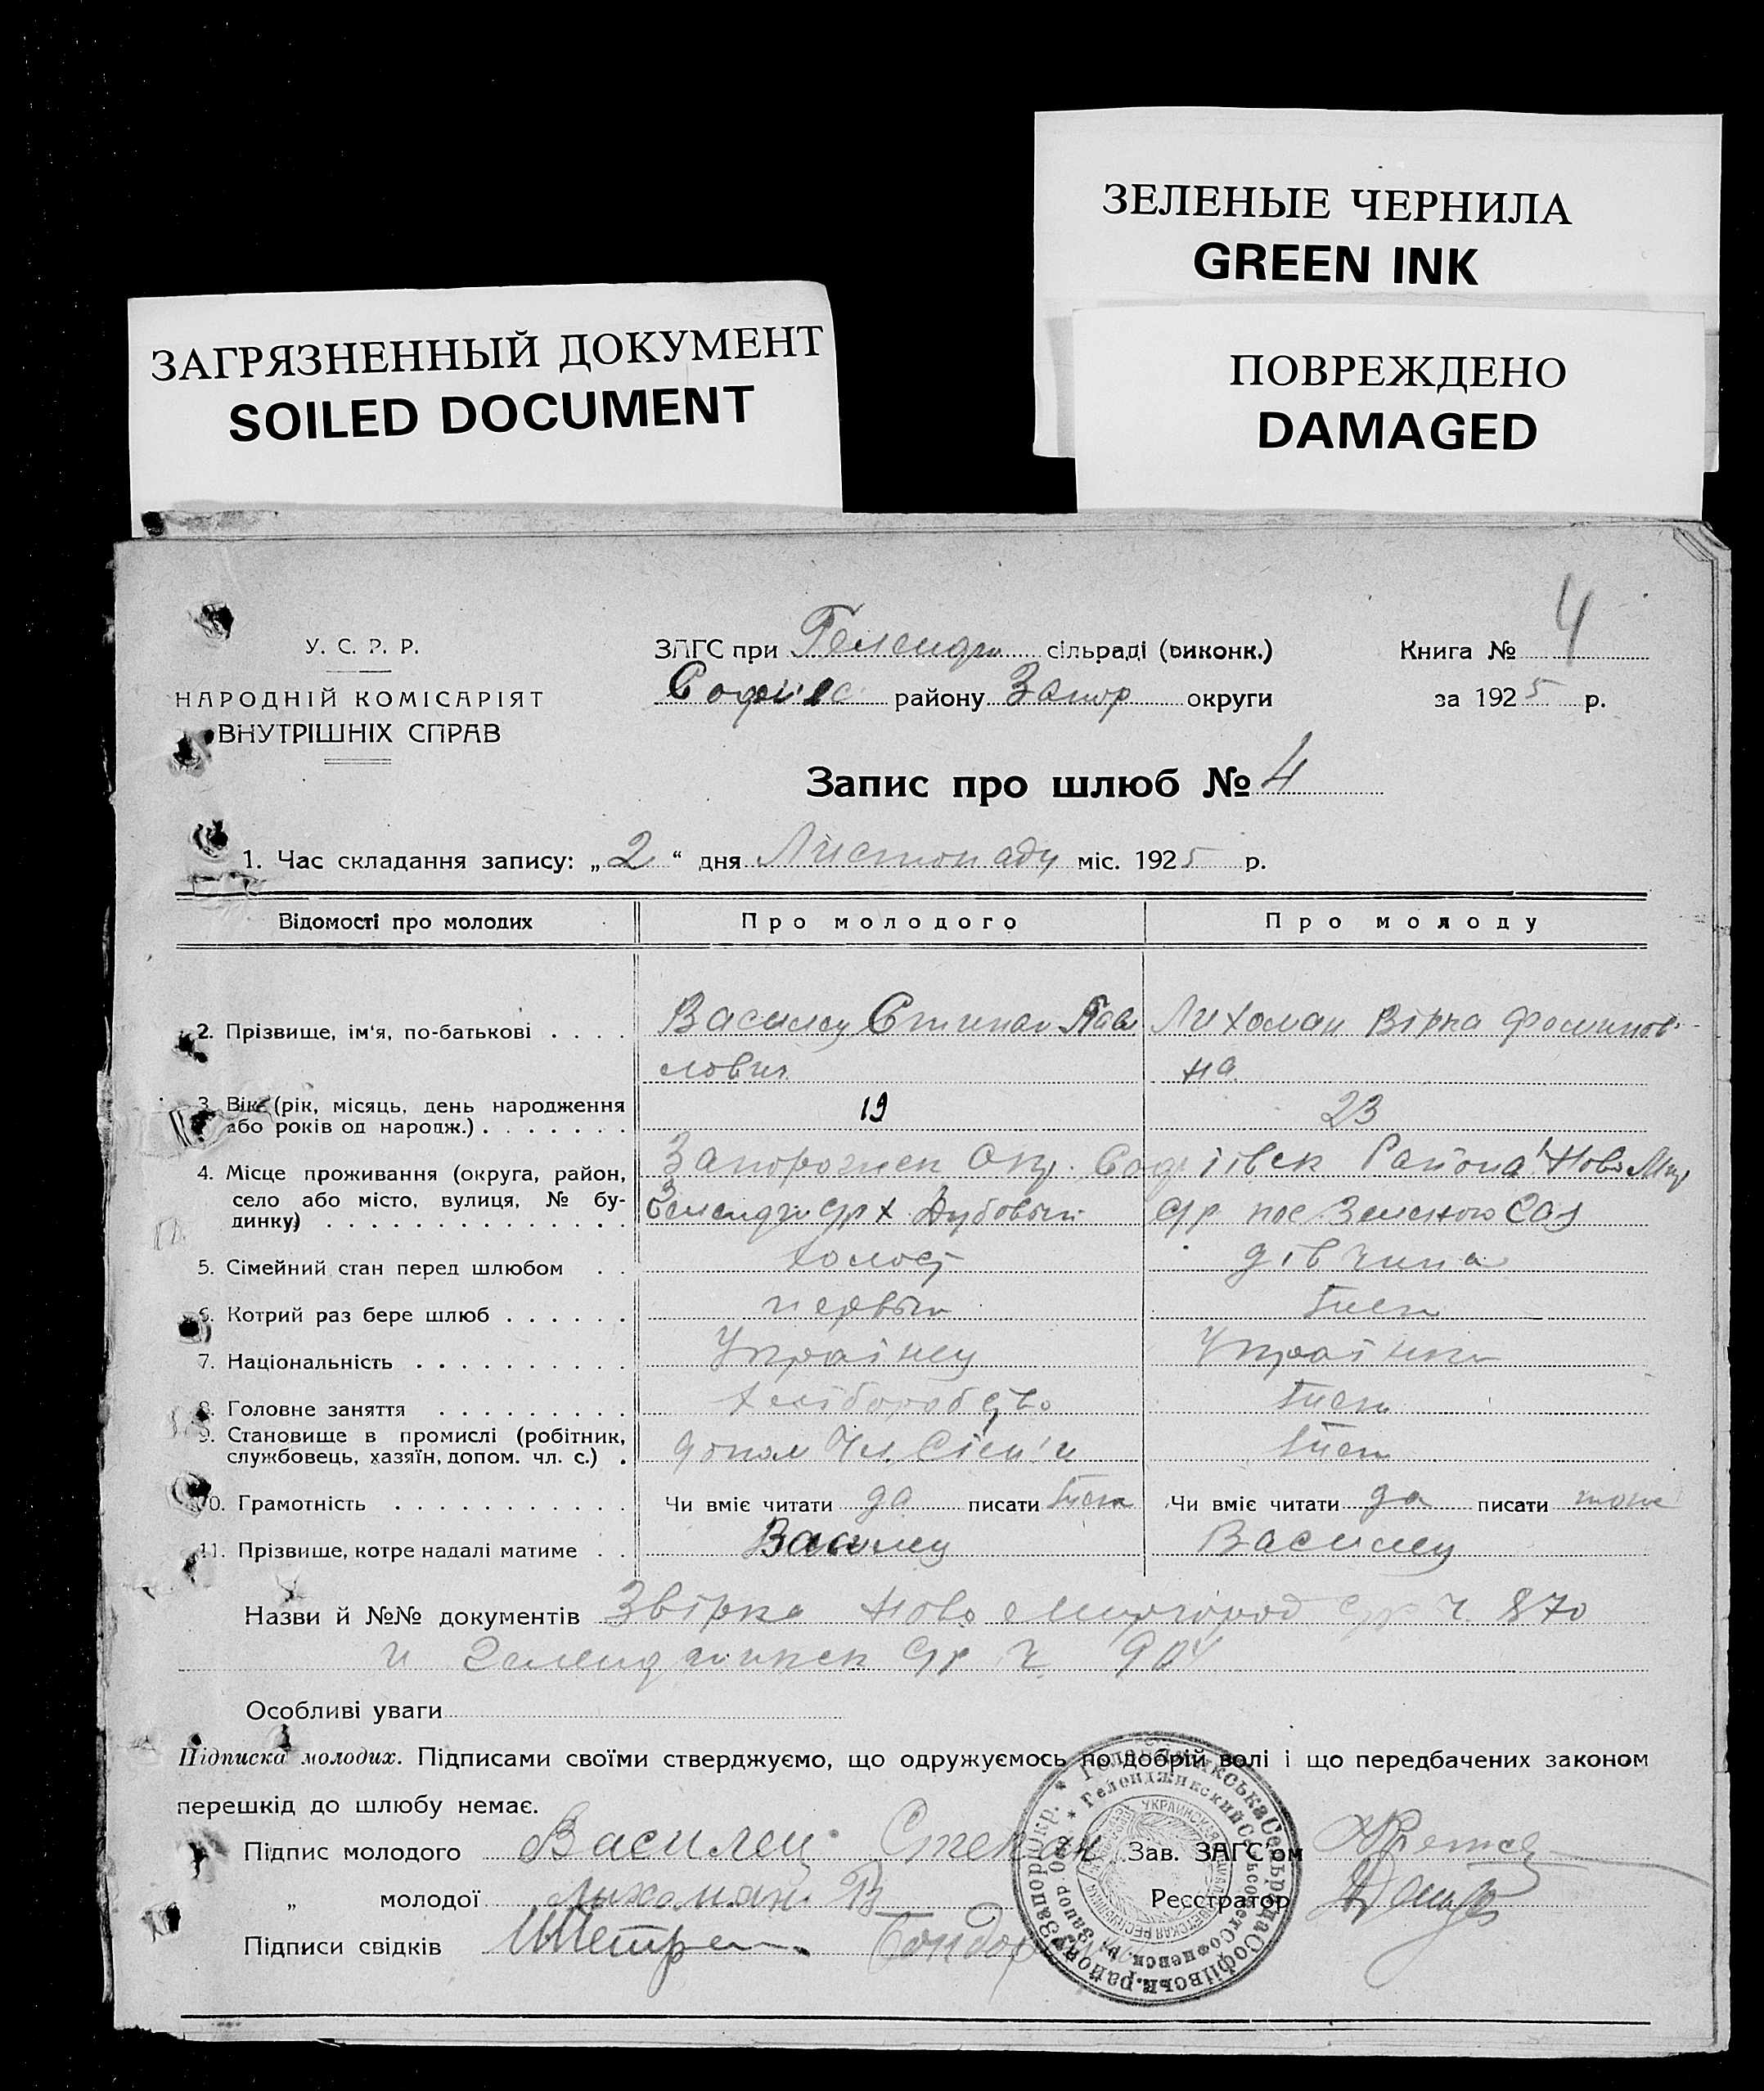 ЗЕЛЕНЫЕ ЧЕРНИЛА
GREEN INK
ЗАГРЯЗНЕННЫЙ ДОКУМЕНТ
SOILED DOCUMENT
ПОВРЕЖДЕНО
DAMAGED
У. С. Р. Р.
НАРОДНІЙ КОМІСАРІЯТ
ВНУТРІШНІХ СПРАВ
ЗАГС при Геленджи сільраді (виконк.)
Софиев району Запор округи
Книга № 4
за 1925 р.
Запис про шлюб № 4
1. Час складання запису: „2“ дня Листопаду міс. 1925 р.
Відомості про молодих Про молодого Про молоду
2. Прізвище, ім'я, по-батькові . . . . Василец Степан Пав Лихоман Вірка Фоминов
лович на
3. Вік (рік, місяць, день народження 19 23
або років од народж.) . . . . . . .
4. Місце проживання (округа, район, Запорожск Окр. Софіівск Района Ново Мир
село або місто, вулиця, № бу- Геленджи с/р х Дубовый с/р пос Зеленою Сад
динку) . . . . . . . . . . . . . .
5. Сімейний стан перед шлюбом . . холост дівчина
6. Котрий раз бере шлюб . . . . . . первый
7. Національність . . . . . . . . . . Українец Українка
8. Головне заняття . . . . . . . . . хліборобство
9. Становище в промислі (робітник, допом Чл. Сімі
службовець, хазяїн, допом. чл. с.) .
10. Грамотність . . . . . . . . . . . Чи вміє читати да писати Чи вміє читати да писати тоже
11. Прізвище, котре надалі матиме . . Василец Василец
Назви й №№ документів Звірка Ново Миргород с/р ч. 870
и Геленджикск с/р ч. 904
Особливі уваги
Підписка молодих. Підписами своїми стверджуємо, що одружуємось по добрій волі і що передбачених законом
перешкід до шлюбу немає.
Підпис молодого Василец Степан Зав. ЗАГС'ом
„ молодої Лихоман В Реєстратор
Підписи свідків
* Гелонджикська Сельрада Софіівськ. району Запор. Окр.
* Гелонджикский Сельсовет Софиевск. р. Запор. Окр.
УКРАИНСКАЯ СОЦИАЛ. СОВЕТСКАЯ РЕСПУБЛИКА